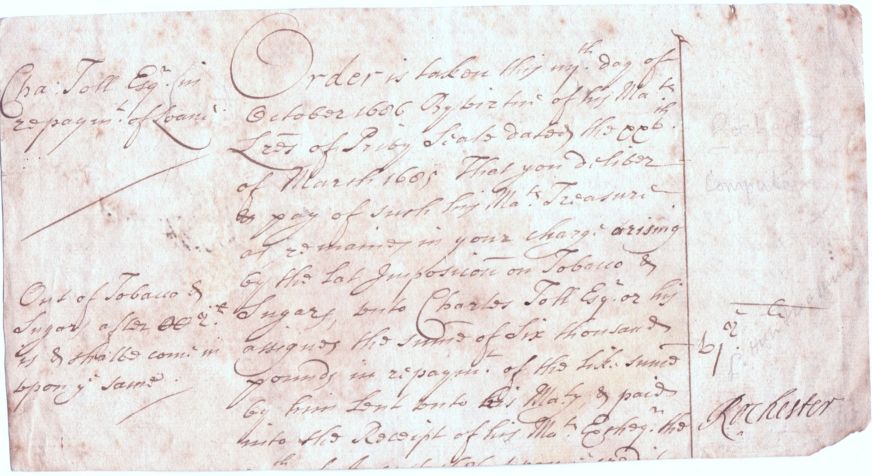 Cha: Toll Esqr. in
repaymt. of Loan
Out of Tobacco &
Sugars after
is & shalbe come in
upon ye same.
Order is taken this day of
October 1686 By virtue of his Mats
Lres of Privy Seale dated the xxth
of March 1685 That you deliver
& pay of such his Mats Treasure
as remaines in your charge arising
by the lat Imposicon on Tobacco &
Sugars, unto Charles Toll Esqr. or his
assignes the summe of Six thousand
pounds in repaymt. of the like summe
by him Lent unto his Maty & paid
into the Receipt of his Mats Excheqr. the
Rochester